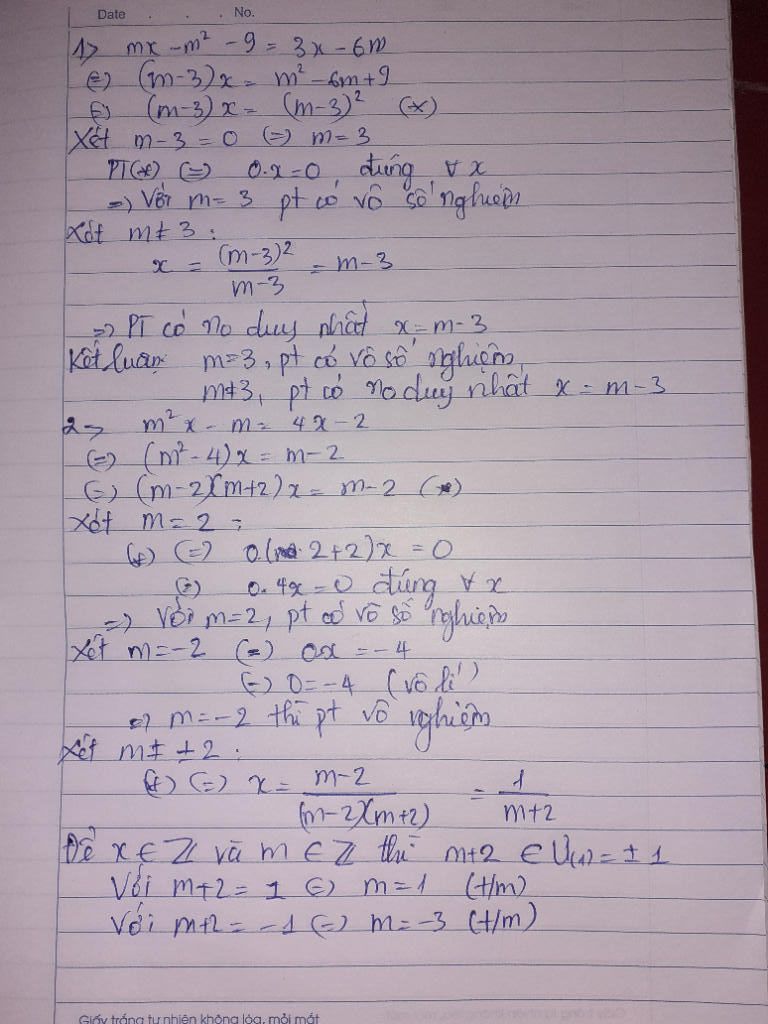 Date . . . No.
1> mx - m² - 9 = 3x - 6m
(=) (m-3)x = m² - 6m + 9
(=) (m-3)x = (m-3)² (*)
Xét m-3 = 0 (=) m = 3
PT(*) (=) 0.x = 0, đúng ∀ x
=> Với m = 3 pt có vô số nghiệm
Xét m ≠ 3 :
x = (m-3)² / (m-3) = m-3
=> PT có no duy nhất x = m-3
Kết luận m=3, pt có vô số nghiệm
m≠3, pt có no duy nhất x = m-3
2> m²x - m = 4x - 2
(=) (m² - 4)x = m-2
(=) (m-2)(m+2)x = m-2 (*)
Xét m = 2 :
(*) (=) 0(2+2)x = 0
(=) 0.4x = 0 đúng ∀ x
=> Với m=2, pt có vô số nghiệm
Xét m=-2 (=) 0x = -4
(=) 0 = -4 (vô lí)
=> m = -2 thì pt vô nghiệm
Xét m ≠ ±2 :
(*) (=) x = (m-2) / (m-2)(m+2) = 1 / (m+2)
Để x ∈ ℤ và m ∈ ℤ thì m+2 ∈ Ư(1) = ±1
Với m+2 = 1 (=) m=1 (t/m)
Với m+2 = -1 (=) m = -3 (t/m)
Giấy trắng tự nhiên không lóa, mỏi mắt